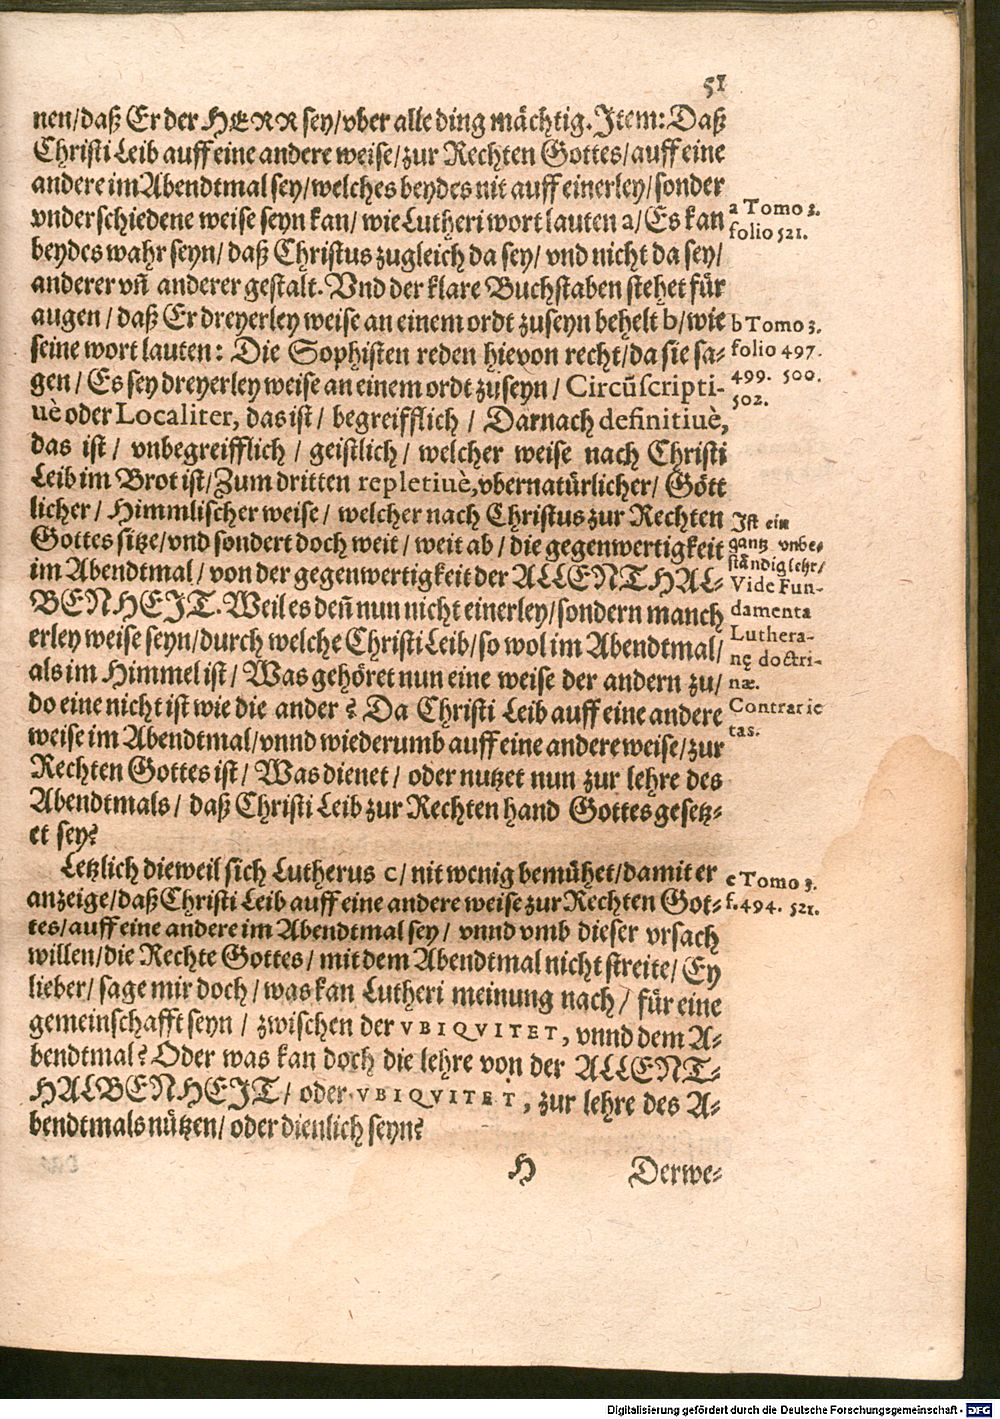 51
nen/daß Er der HERR sey/vber alle ding mächtig. Item: Daß
Christi Leib auff eine andere weise/zur Rechten Gottes/auff eine
andere im Abendtmal sey/welches beydes nit auff einerley/sonder
vnderschiedene weise seyn kan/wie Lutheri wort lauten a/Es kan
beydes wahr seyn/daß Christus zugleich da sey/vnd nicht da sey/
anderer vn̄ anderer gestalt. Vnd der klare Buchstaben stehet für
augen/daß Er dreyerley weise an einem ordt zuseyn behelt b/wie
seine wort lauten: Die Sophisten reden hievon recht/da sie sa-
gen/Es sey dreyerley weise an einem ordt zuseyn/Circūscripti-
uè oder Localiter, das ist/begreifflich/Darnach definitiuè,
das ist/vnbegreifflich/geistlich/welcher weise nach Christi
Leib im Brot ist/Zum dritten repletiuè, vbernatürlicher/Gött
licher/Himmlischer weise/welcher nach Christus zur Rechten
Gottes sitze/vnd sondert doch weit/weit ab/die gegenwertigkeit
im Abendtmal/von der gegenwertigkeit der ALLENTHAL-
BENHEIT. Weil es deñ nun nicht einerley/sondern manch
erley weise seyn/durch welche Christi Leib/so wol im Abendtmal/
als im Himmel ist/Was gehöret nun eine weise der andern zu/
do eine nicht ist wie die ander? Da Christi Leib auff eine andere
weise im Abendtmal/vnnd wiederumb auff eine andere weise/zur
Rechten Gottes ist/Was dienet/oder nutzet nun zur lehre des
Abendtmals/daß Christi Leib zur Rechten hand Gottes gesetz-
et sey?
Letzlich dieweil sich Lutherus c/nit wenig bemühet/damit er
anzeige/daß Christi Leib auff eine andere weise zur Rechten Got-
tes/auff eine andere im Abendtmal sey/vnnd vmb dieser vrsach
willen/die Rechte Gottes/mit dem Abendtmal nicht streite/Ey
lieber/sage mir doch/was kan Lutheri meinung nach/für eine
gemeinschafft seyn/zwischen der VBIQVITET, vnnd dem A-
bendtmal? Oder was kan doch die lehre von der ALLENT-
HALBENHEIT/oder VBIQVITET, zur lehre des A-
bendtmals nützen/oder dienlich seyn?
H Derwe-
a Tomo 3.
folio 521.
b Tomo 3.
folio 497.
499. 500.
502.
Ist ein
gantz vnbe-
ständig lehr/
Vide Fun-
damenta
Luthera-
nę doctri-
næ.
Contrarie
tas.
c Tomo 3.
f. 494. 521.
Digitalisierung gefördert durch die Deutsche Forschungsgemeinschaft - DFG